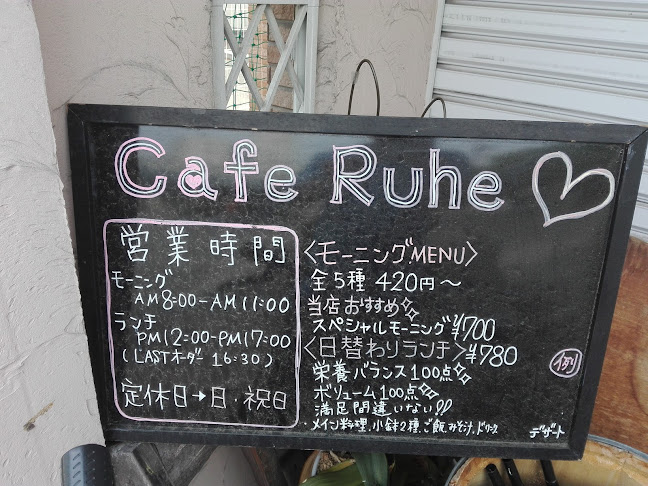 Cafe Ruhe
営業時間
モーニング
AM8:00-AM11:00
ランチ
PM12:00-PM17:00
(LASTオーダー 16:30)
定休日→日・祝日
<モーニングMENU>
全5種 420円～
当店おすすめ
スペシャルモーニング¥700
<日替わりランチ>¥780
栄養バランス100点
ボリューム100点
満足間違いない!!
・メイン料理、小鉢2種、ご飯、みそ汁、ドリンク
デザート